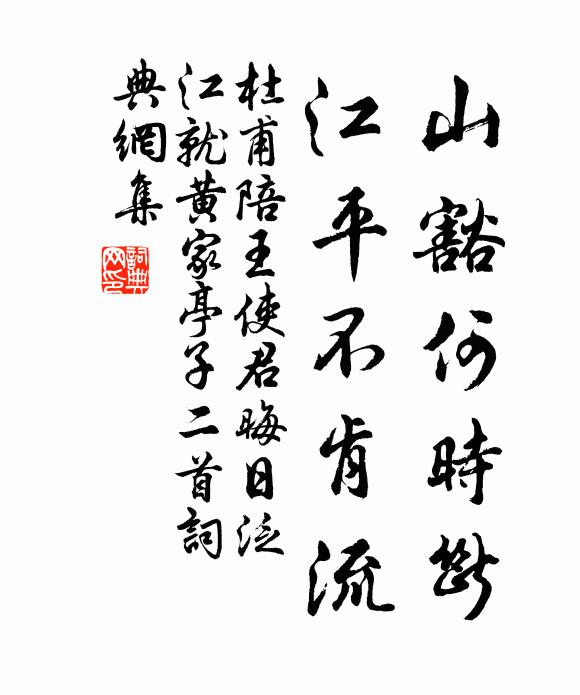 山豁何時斷
江平不肯流
杜甫陪王使君晦日泛
江就黄家亭子二首詞
典網集
詞典網印